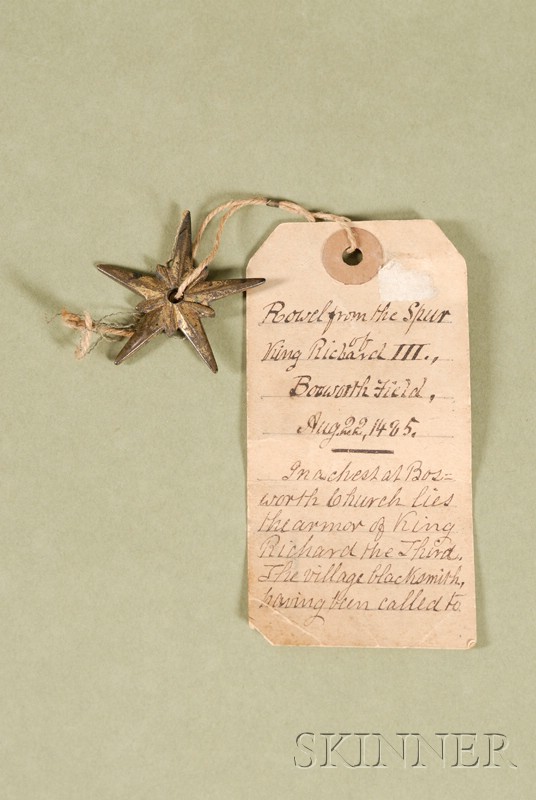 Rowel from the Spur
of
King Richard III.,
Bosworth Field,
Aug. 22, 1485.
In a chest at Bos=
worth Church lies
the armor of King
Richard the Third.
The village blacksmith,
having been called to
SKINNER